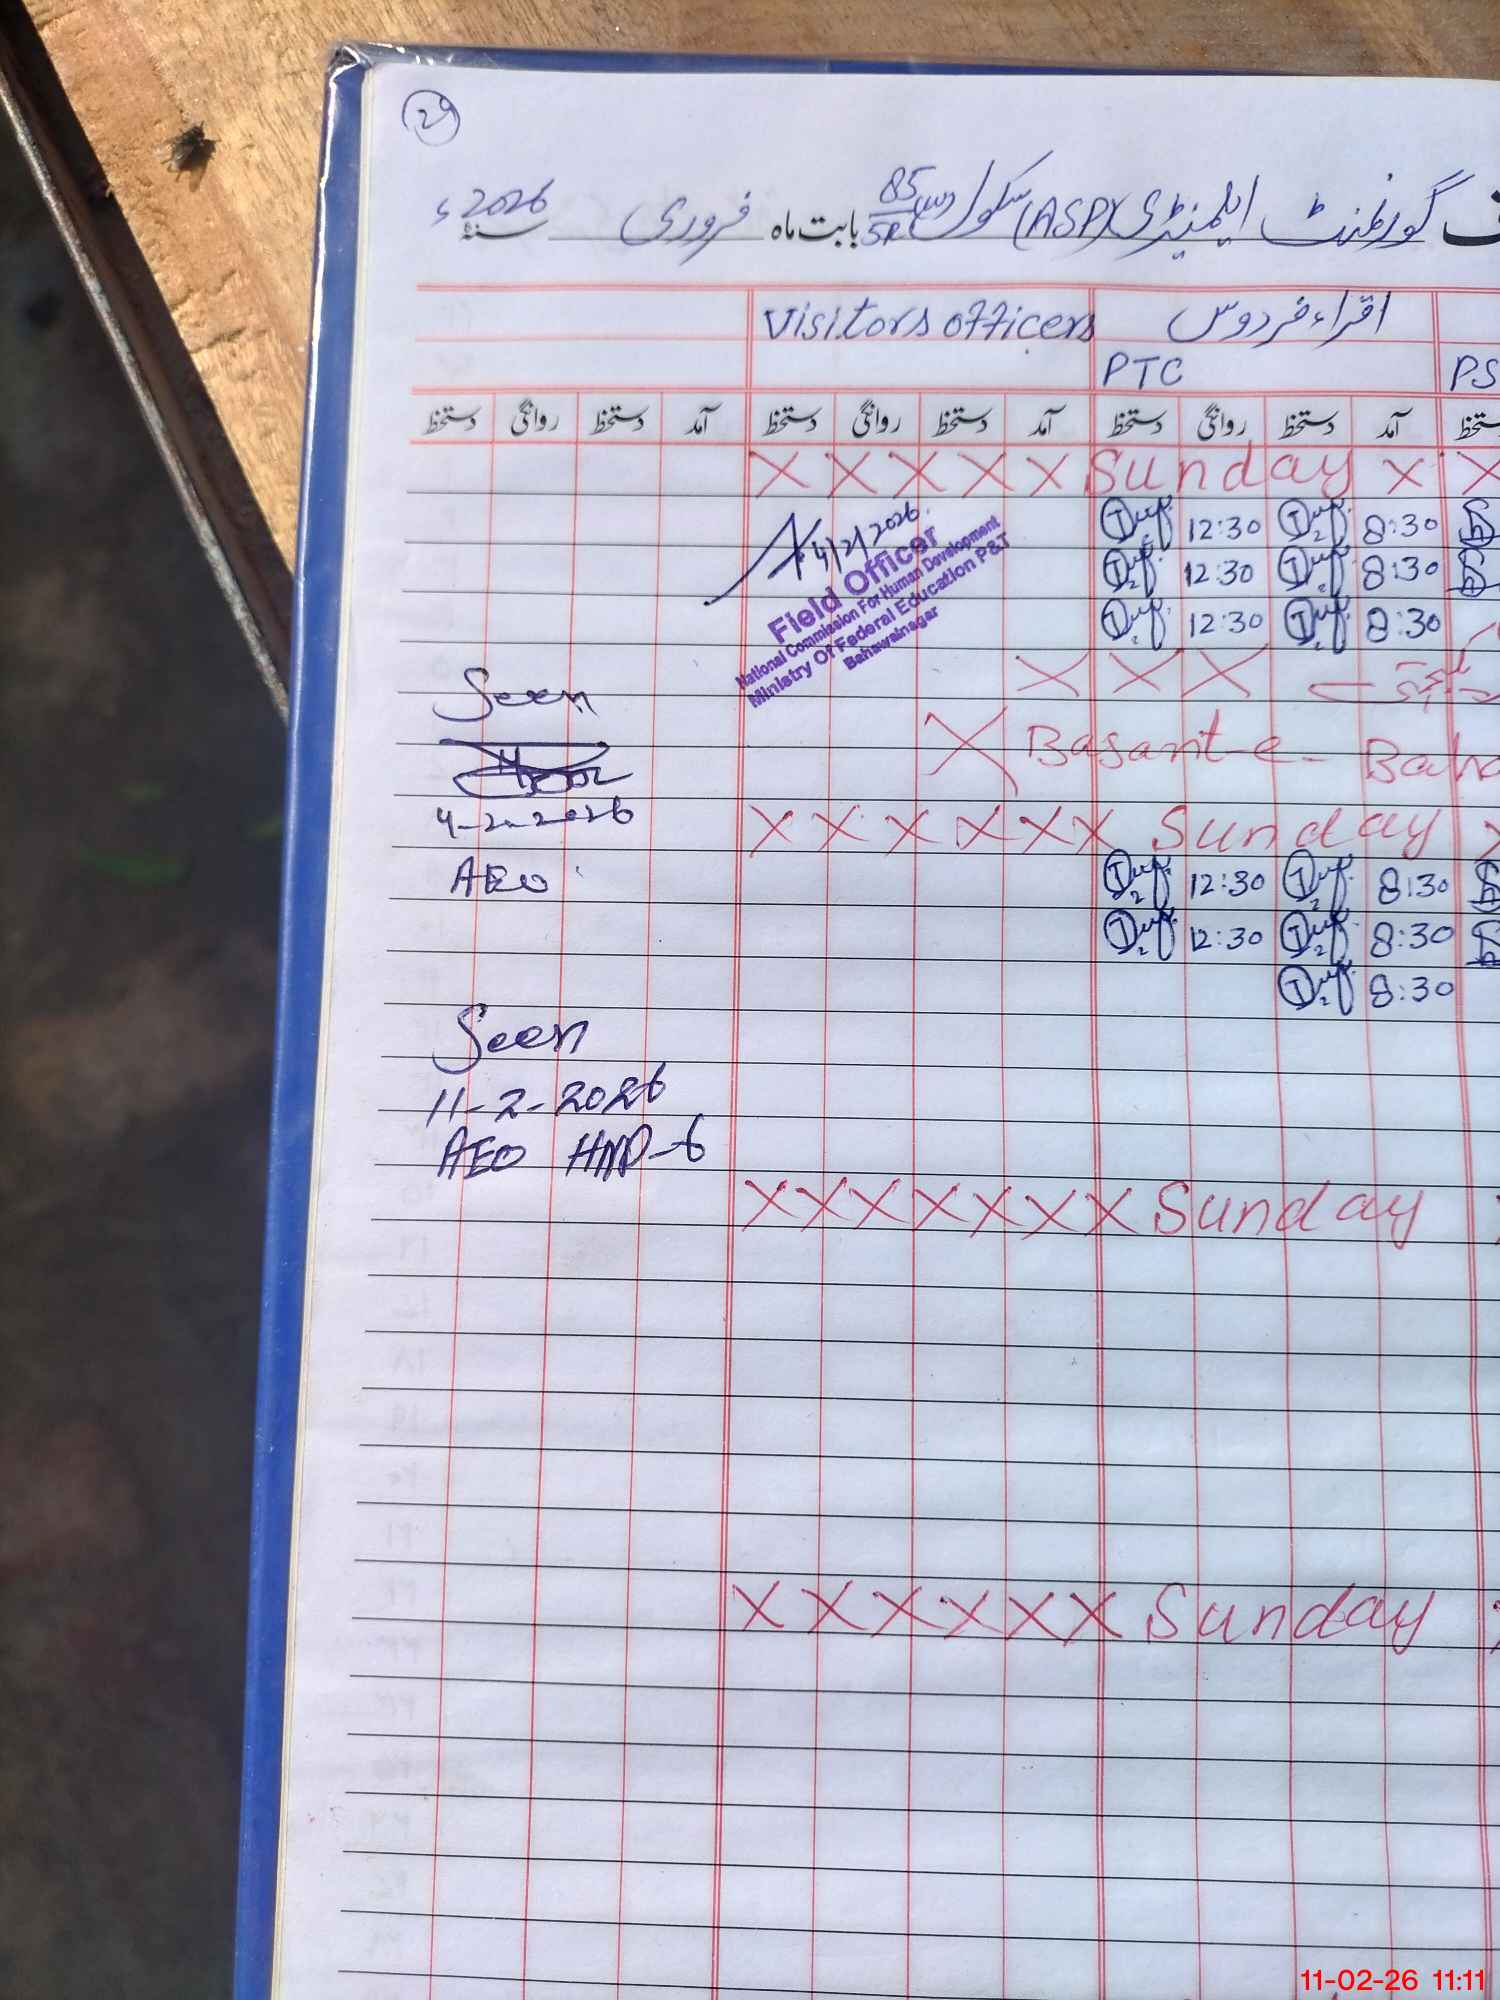 29
گورنمنٹ ایلیمنٹری (ASP) سکول 85/5R بابت ماہ فروری سنہ 2026ء
Visitors officers اقراء فردوس
PTC PS
آمد دستخط روانگی دستخط آمد دستخط روانگی دستخط آمد دستخط روانگی دستخط
X X X X X Sunday X X
12:30 8:30
4/2/2026
Field Officer
National Commission For Human Development
Ministry Of Federal Education P&T
Bahawalnagar
12:30 8:30
12:30 8:30
X X X
Seen
X Basant-e-Baha
4-2-2026
X X X X X X Sunday
AEO
12:30 8:30
12:30 8:30
8:30
Seen
11-2-2026
AEO HND-6
X X X X X X X Sunday
X X X X X X Sunday
11-02-26 11:11